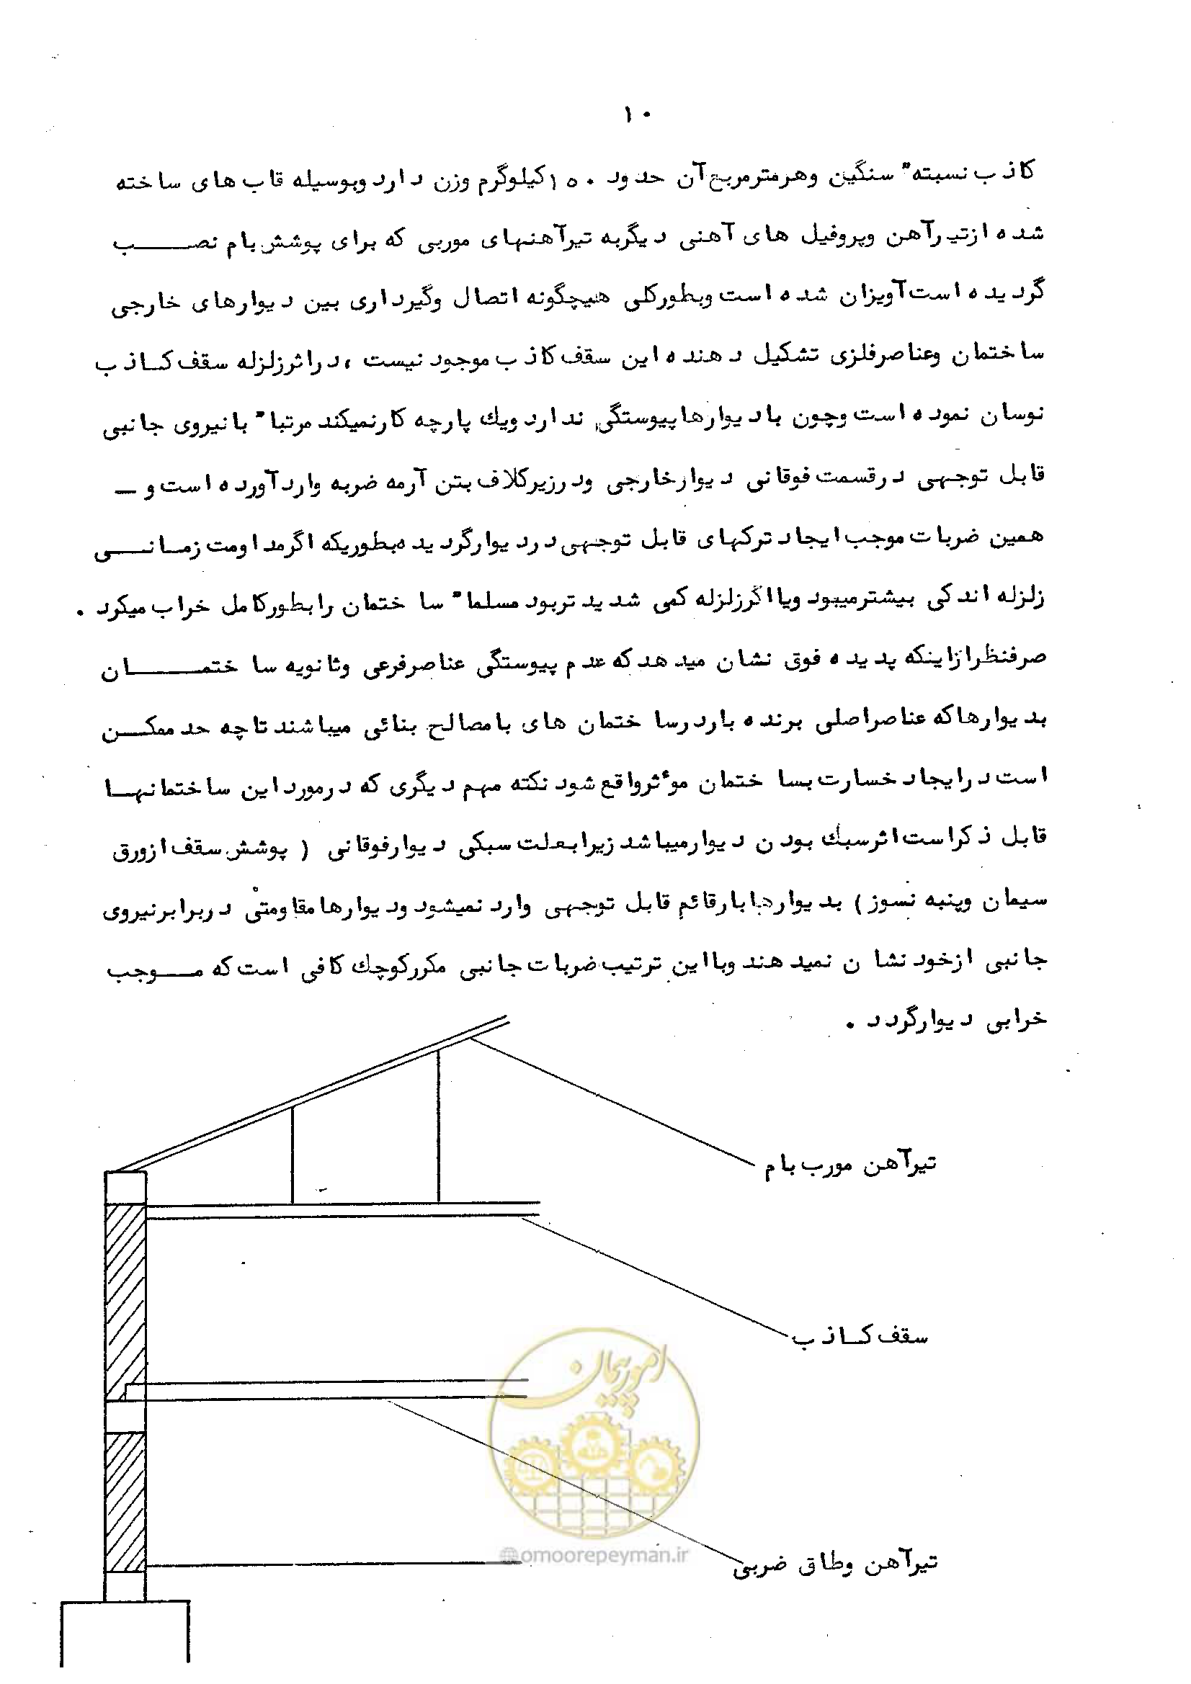 ۱۰
کاذب نسبته" سنگین وهرمترمربع آن حدود ۱۵۰کیلوگرم وزن دارد وبوسیله قاب های ساخته
شده ازتیرآهن وپروفیل های آهنی دیگربه تیرآهنهای موربی که برای پوشش بام نصب
گردیده است آویزان شده است وبطورکلی هیچگونه اتصال وگیرداری بین دیوارهای خارجی
ساختمان وعناصرفلزی تشکیل دهنده این سقف کاذب موجود نیست ، دراثرزلزله سقف کاذب
نوسان نموده است وچون بادیوارهاپیوستگی نداردویك پارچه کارنمیکند مرتبا" بانیروی جانبی
قابل توجهی درقسمت فوقانی دیوارخارجی ودرزیرکلاف بتن آرمه ضربه واردآورده است و —
همین ضربات موجب ایجادترکهای قابل توجهی دردیوارگردیده بطوریکه اگرمداومت زمانی
زلزله اندکی بیشترمیبود ویااگرزلزله کمی شدیدتربود مسلما" ساختمان رابطورکامل خراب میکرد .
صرفنظرازاینکه پدیده فوق نشان میدهدکه عدم پیوستگی عناصرفرعی وثانویه ساختمان
بدیوارهاکه عناصراصلی برنده باردرساختمان های بامصالح بنائی میباشندتاچه حدممکن
است درایجادخسارت بساختمان موٴثرواقع شودنکته مهم دیگری که درمورداین ساختمانها
قابل ذکراست اثرسبك بودن دیوارمیباشد زیرابعلت سبکی دیوارفوقانی ( پوشش سقف ازورق
سیمان وپنبه نسوز) بدیوارهابارقائم قابل توجهی وارد نمیشود ودیوارهامقاومتی دربرابرنیروی
جانبی ازخودنشان نمیدهند وبااین ترتیب ضربات جانبی مکررکوچك کافی است که موجب
خرابی دیوارگردد .
تیرآهن مورب بام
سقف کاذب
امور پیمان
@omoorepeyman.ir
تیرآهن وطاق ضربی